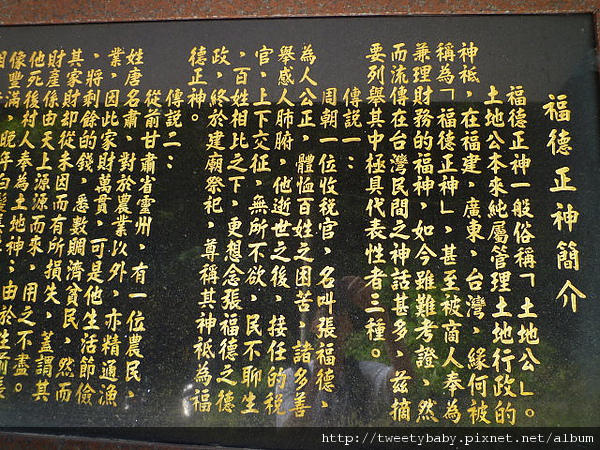 福德正神簡介
福德正神一般俗稱「土地公」。
土地公本來純屬管理土地行政的
神祇，在福建，廣東，台灣，緣何被
稱為「福德正神」，甚至被商人奉為
兼理財務的福神，如今雖難考證，然
而流傳在台灣民間之神話甚多，茲摘
要列舉其中極具代表性者三種。
傳說一：
周朝一位收稅官，名叫張福德，
為人公正，體恤百姓之困苦，諸多善
舉感人肺腑，他逝世之後，接任的稅
官，上下交征，無所不欲，民不聊生
，百姓相比之下，更想念張福德之德
政，終於建廟祭祀，尊稱其神祇為福
德正神。
傳說二：
從前甘肅省靈州，有一位農民，
姓唐名肅，對於農業以外，亦精通漁
業，因此家財萬貫，可是他生活節儉
，將剩餘的錢，悉數賙濟貧民，然而
其家財卻從未因而有所損失，蓋謂其
財產係由天上源源而來，用之不盡。
他死後村人奉為土地神，由於生前長
像豐滿，晚年白鬚
http://tweetybaby.pixnet.net/album